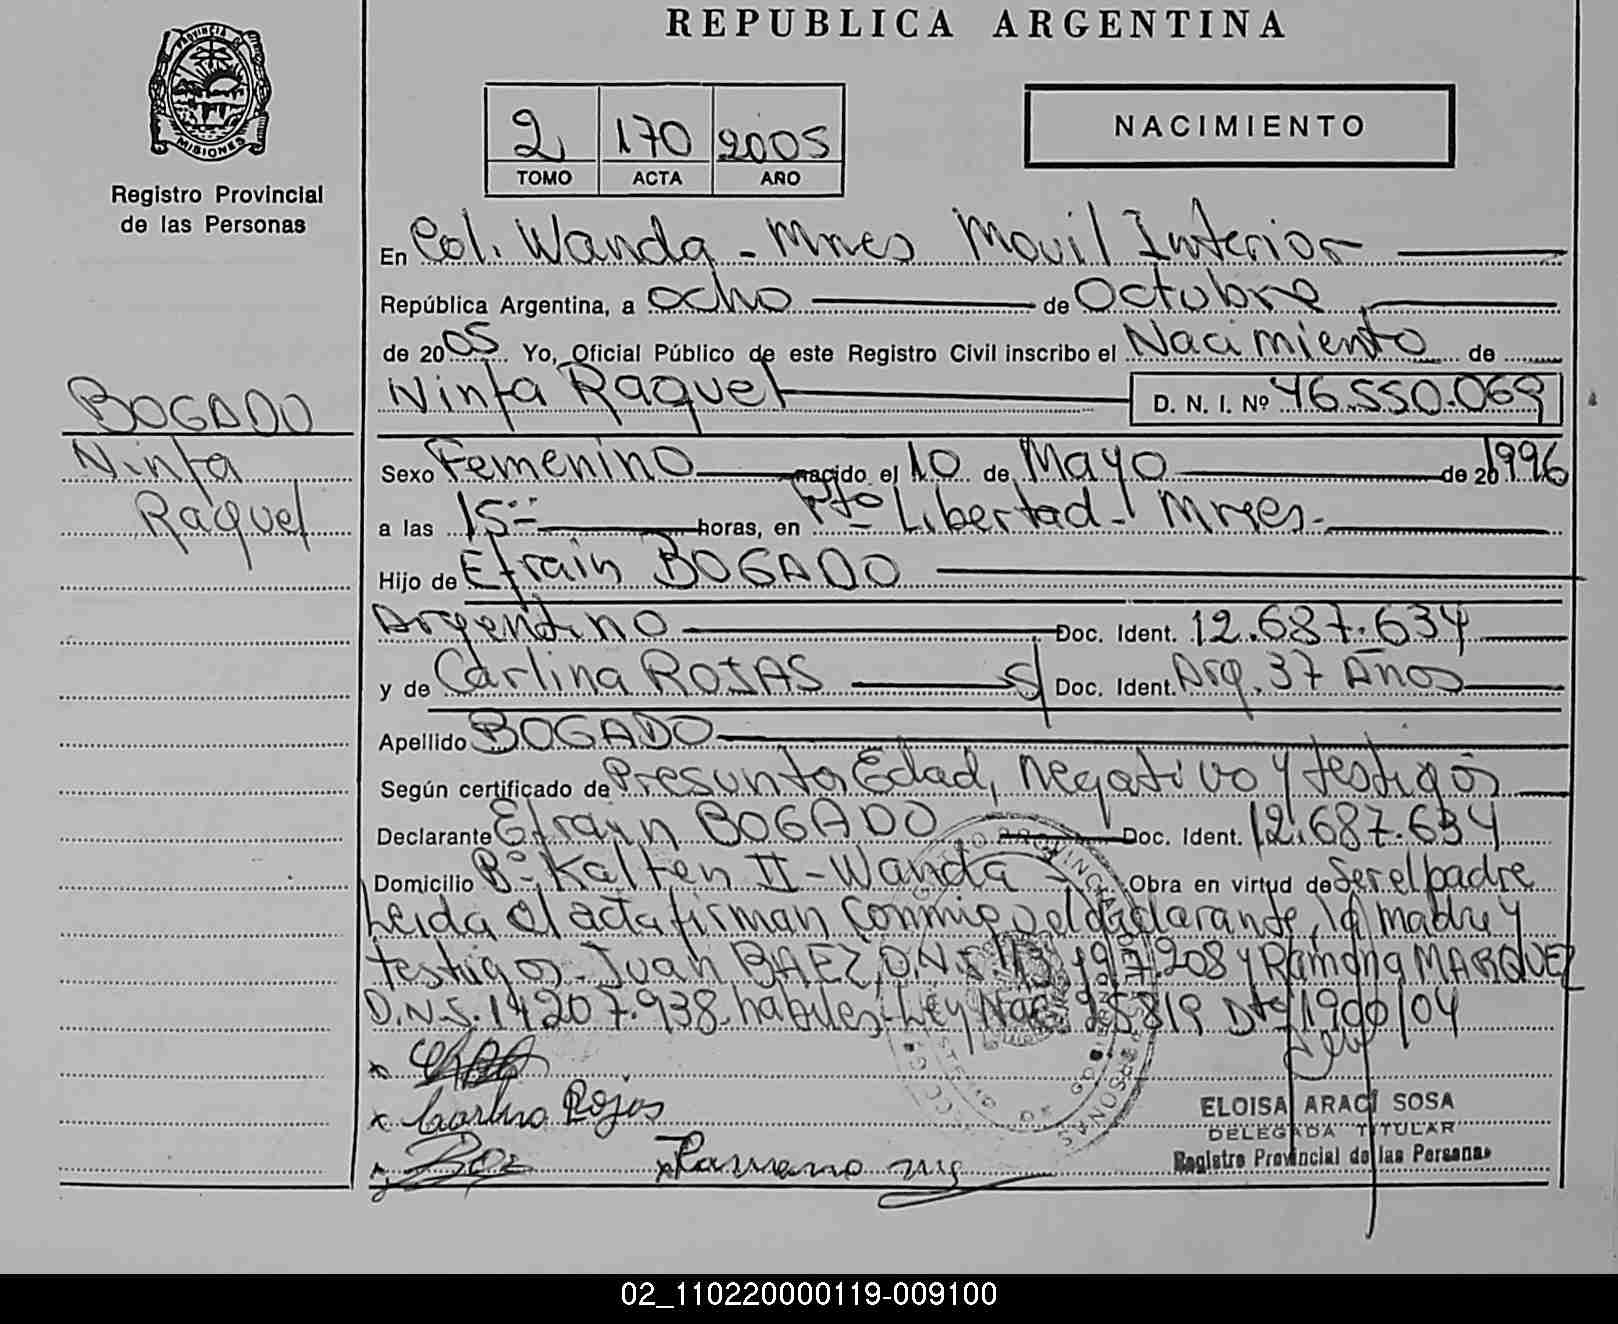 REPUBLICA ARGENTINA
PROVINCIA DE
MISIONES
Registro Provincial
de las Personas
2 170 2005
TOMO ACTA AÑO
NACIMIENTO
En Col. Wanda - Mnes Movil Interior
República Argentina, a ocho de Octubre
de 2005 Yo, Oficial Público de este Registro Civil inscribo el Nacimiento de
Ninfa Raquel D. N. I. Nº 46.550.069
BOGADO
Ninfa
Raquel
Sexo Femenino nacido el 10 de Mayo de 20 1996
a las 15 horas, en Pto Libertad - Mnes.
Hijo de Efrain BOGADO
Argentino Doc. Ident. 12.687.634
y de Carlina ROJAS s/ Doc. Ident. Arg. 37 Años
Apellido BOGADO
Según certificado de Presunta Edad, negativo y testigos
Declarante Efrain BOGADO Doc. Ident. 12.687.634
Domicilio Bº Kalten II - Wanda Obra en virtud de Ser el padre
Leida el acta firman conmigo el declarante, la madre y
testigos. Juan BAEZ, D.N.I. 13.197.208 y Ramona MARQUEZ
D.N.I. 14.207.938. habiles. Ley Nac 25819 Dto 1900/04
x
x Carlina Rojas
x x
ELOISA ARACI SOSA
DELEGADA TITULAR
Registro Provincial de las Personas
02_110220000119-009100